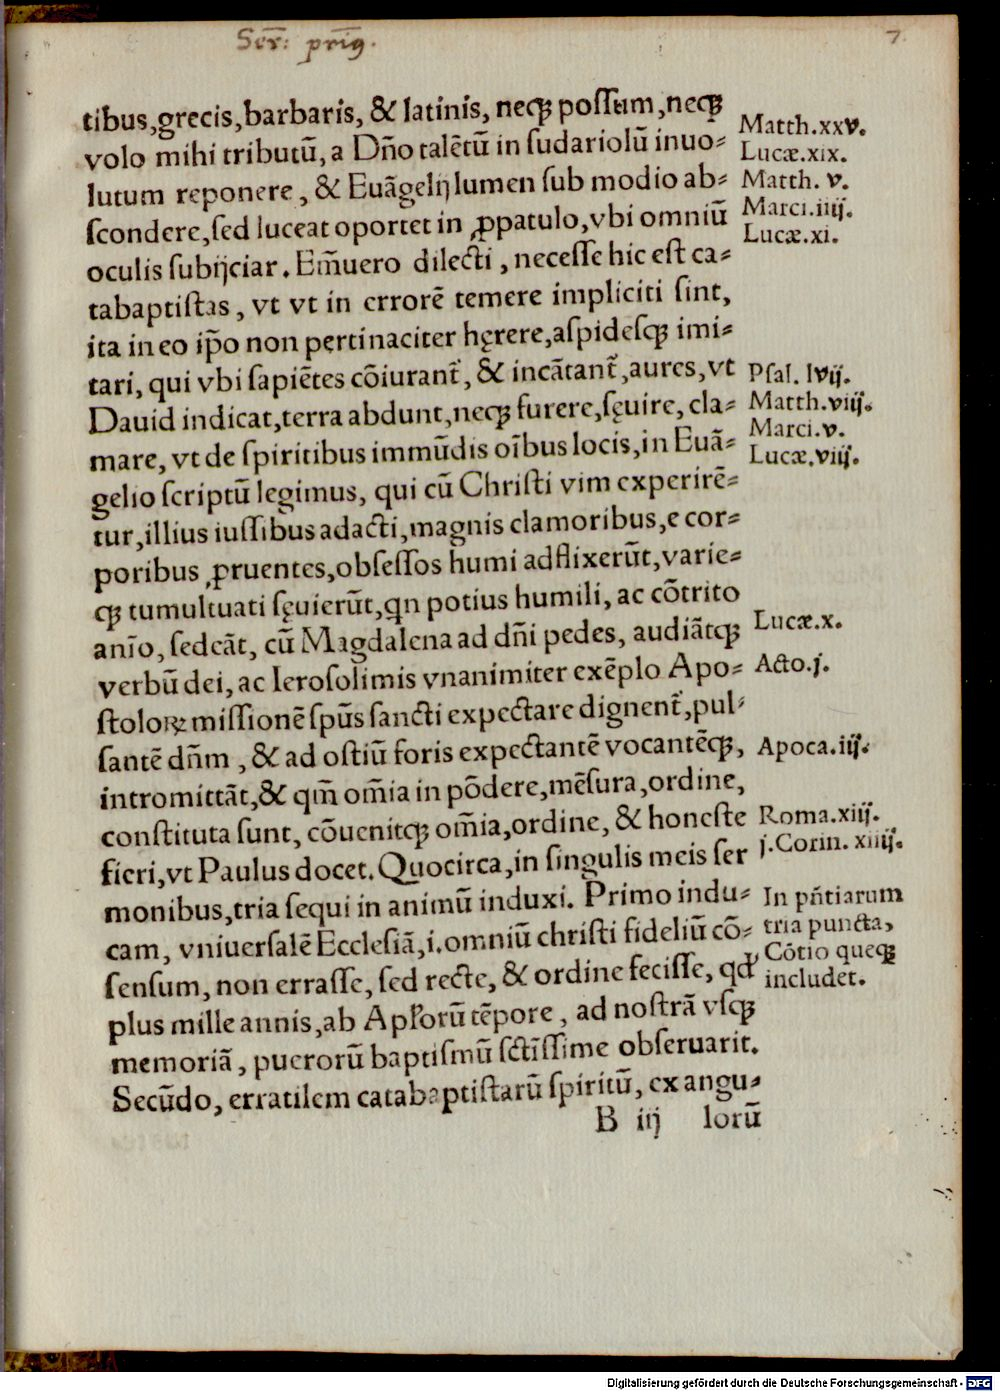 Ser̅: pri̅9.
7.
tibus,grecis,barbaris, & latinis, neqꝫ possum,neqꝫ
volo mihi tributũ, a Dn̄o talētũ in sudariolũ inuo⸗
lutum reponere, & Euãgelij lumen sub modio ab⸗
scondere,sed luceat oportet in ꝓpatulo,vbi omniũ
oculis subijciar. Em̄uero dilecti, necesse hic est ca⸗
tabaptistas, vt vt in errorē temere impliciti sint,
ita in eo ip̄o non pertinaciter hęrere,aspidesqꝫ imi⸗
tari, qui vbi sapiētes cōiurant᷑, & incãtant᷑,aures, vt
Dauid indicat,terra abdunt,neqꝫ furere,sęuire, cla⸗
mare, vt de spiritibus immũdis oībus locis,in Euã⸗
gelio scriptũ legimus, qui cũ Christi vim experirē⸗
tur,illius iussibus adacti,magnis clamoribus,e cor⸗
poribus ꝓruentes,obsessos humi adflixerũt,varie⸗
qꝫ tumultuati sęuierũt,qn potius humili, ac cōtrito
anīo, sedeãt, cũ Magdalena ad dn̄i pedes, audiãtqꝫ
verbũ dei, ac Ierosolimis vnanimiter exēplo Apo⸗
stoloꝝ missionē sp̄us sancti expectare dignent᷑,pul⸗
santē dn̄m, & ad ostiũ foris expectantē vocantēqꝫ,
intromittãt,& qm̄ om̄ia in pōdere,mēsura,ordine,
constituta sunt, cōuenitqꝫ om̄ia,ordine, & honeste
fieri,vt Paulus docet. Quocirca,in singulis meis ser
monibus,tria sequi in animũ induxi. Primo indu⸗
cam, vniuersalē Ecclesiã,i.omniũ christi fideliũ cō⸗
sensum, non errasse, sed recte, & ordine fecisse, qd
plus mille annis,ab Apl̓orũ tēpore, ad nostrã vsqꝫ
memoriã, puerorũ baptismũ sctīssime obseruarit.
Secũdo, erratilem catabaptistarũ spiritũ, ex angu⸗
B iij lorũ
Matth.xxv.
Lucæ.xix.
Matth. v.
Marci.iiij.
Lucæ.xi.
Psal. lvij.
Matth.viij.
Marci.v.
Lucæ.viij.
Lucæ.x.
Acto.j.
Apoca.iij.
Roma.xiij.
j.Corin. xiiij.
In pn̄tiarum
tria puncta,
Cōtio queqꝫ
includet.
Digitalisierung gefördert durch die Deutsche Forschungsgemeinschaft - DFG